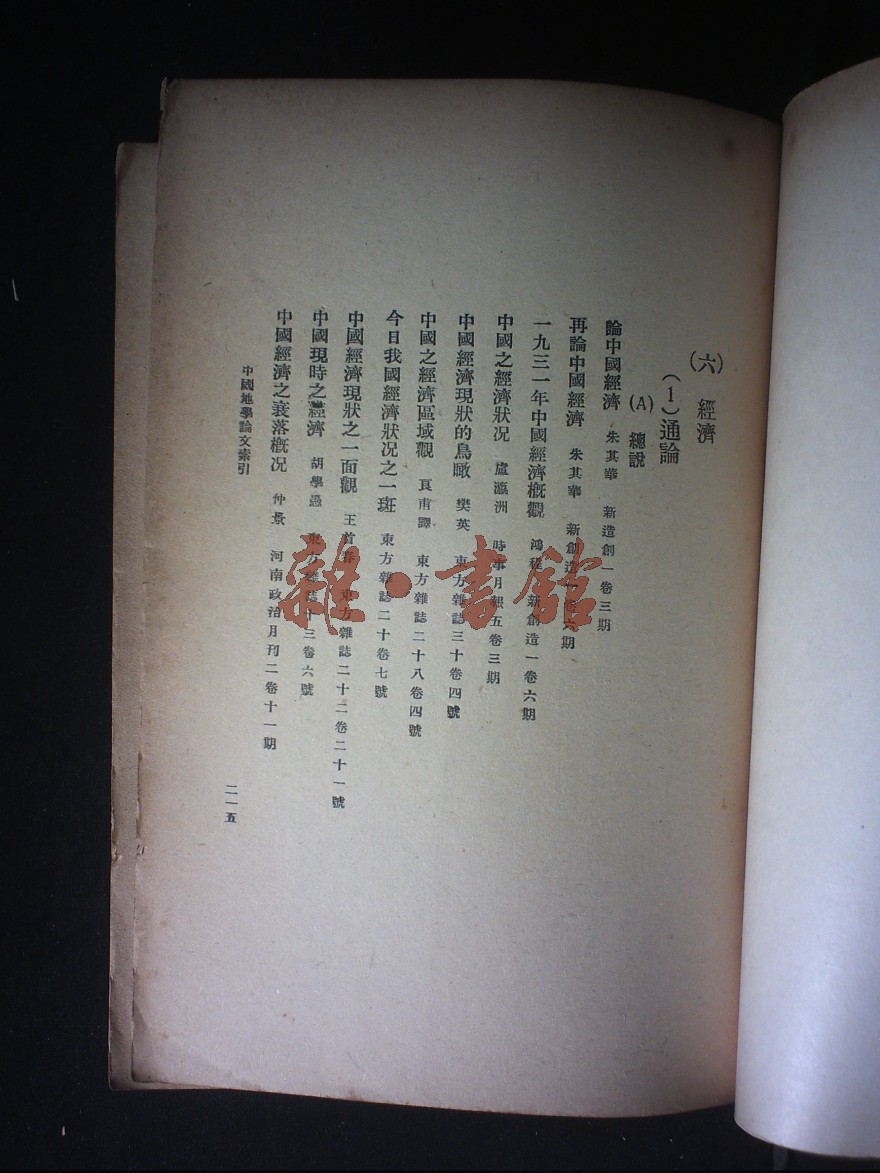 (六) 經濟
(1)通論
(A) 總說
論中國經濟 朱其華 新造創一卷三期
再論中國經濟 朱其華 新創造一卷六期
一九三一年中國經濟概觀 鴻程 新創造一卷六期
中國之經濟狀况 盧瀛洲 時事月報五卷三期
中國經濟現狀的鳥瞰 樊英 東方雜誌三十卷四號
中國之經濟區域觀 良甫譯 東方雜誌二十八卷四號
今日我國經濟狀况之一斑 東方雜誌二十卷七號
中國經濟現狀之一面觀 王首春 東方雜誌二十二卷二十一號
中國現時之經濟 胡學愚 東方雜誌十三卷六號
中國經濟之衰落概况 仲景 河南政治月刊二卷十一期
中國地學論文索引
二一五
雜·書館